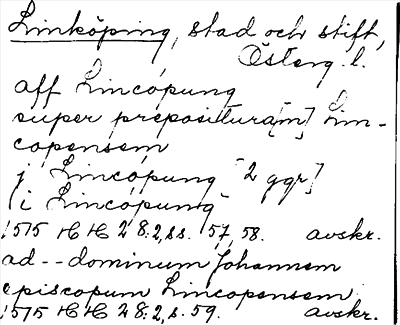 Linköping, stad och stift,
Österg. l.
aff Lincöpung
super prepositura[m] Lin-
copensem
j Lincöpung [2 ggr]
(i Lincöpung
1515 HH 28:2, ss. 57, 58. avskr.
ad -- dominum Johannem
episcopum Lincopensem
1515 HH 28:2, s. 59. avskr.